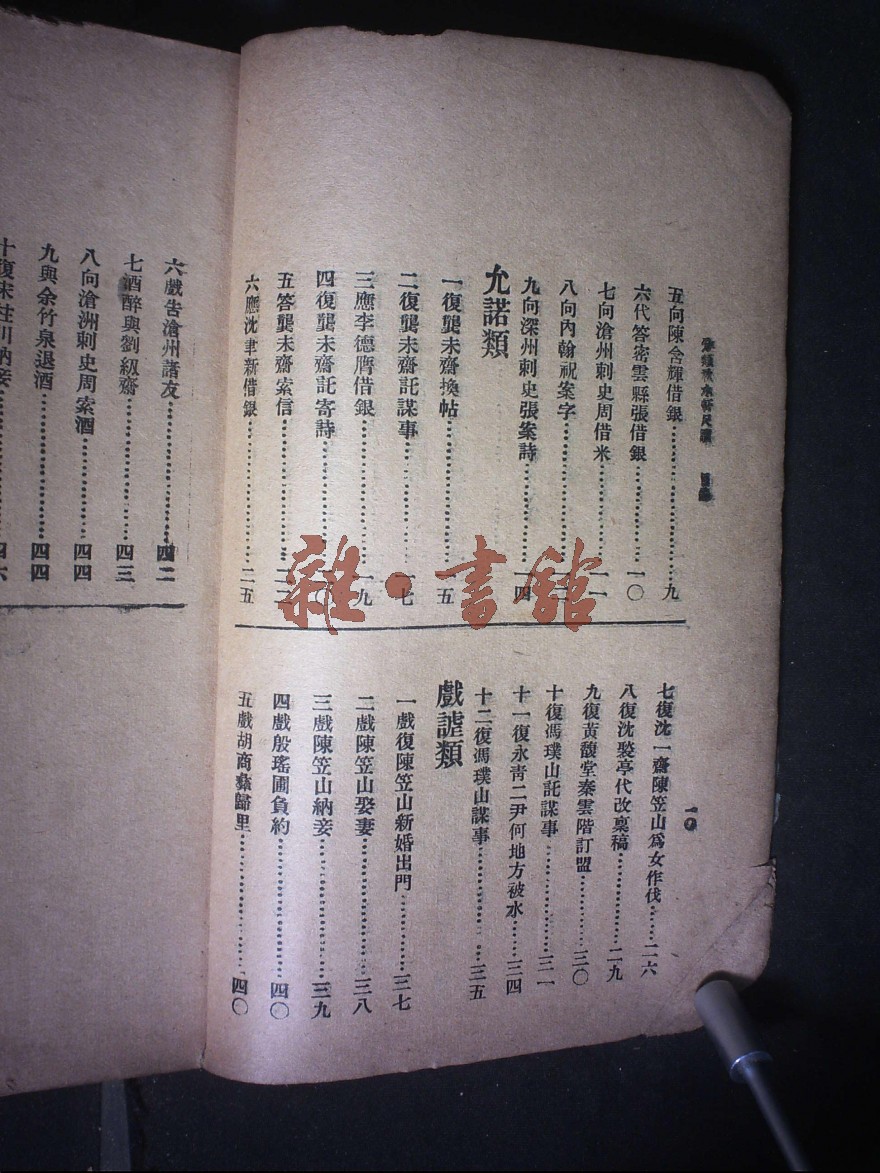 秋水軒尺牘 目錄
五向陳含輝借銀……九
六代答密雲縣張借銀……一〇
七向滄州刺史周借米……一一
八向內翰祝案字
九向深州刺史張案詩……一四
允諾類
一復龔未齋換帖……一五
二復龔未齋託謀事……一七
三應李德膺借銀……一九
四復龔未齋託寄詩
五答龔未齋索信
六應沈聿新借銀……二五
七復沈一齋陳笠山爲女作伐……二六
八復沈裝亭代改稟稿……二九
九復黃馥堂秦雲階訂盟……三〇
十復馮璞山託謀事……三一
十一復永靑二尹何地方被水……三四
十二復馮璞山謀事……三五
戲謔類
一戲復陳笠山新婚出門……三七
二戲陳笠山娶妻……三八
三戲陳笠山納妾……三九
四戲殷瑤圃負約……四〇
五戲胡商彝歸里……四〇
一〇
六戲告滄州諸友……四二
七酒醉與劉級齋……四三
八向滄洲刺史周索酒……四四
九與余竹泉退酒……四四
十復宋桂川納妾……四六
雜·書館